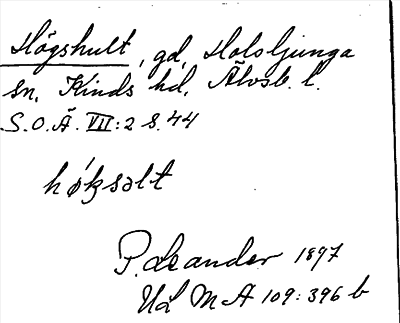 Högshult, gd, Holsljunga
sn, Kinds hd, Älvsb. l.
S.O.Ä. VII:2 S. 44
hǿkʒsəlt
P. Leander 1897
ULMA 109:396 b